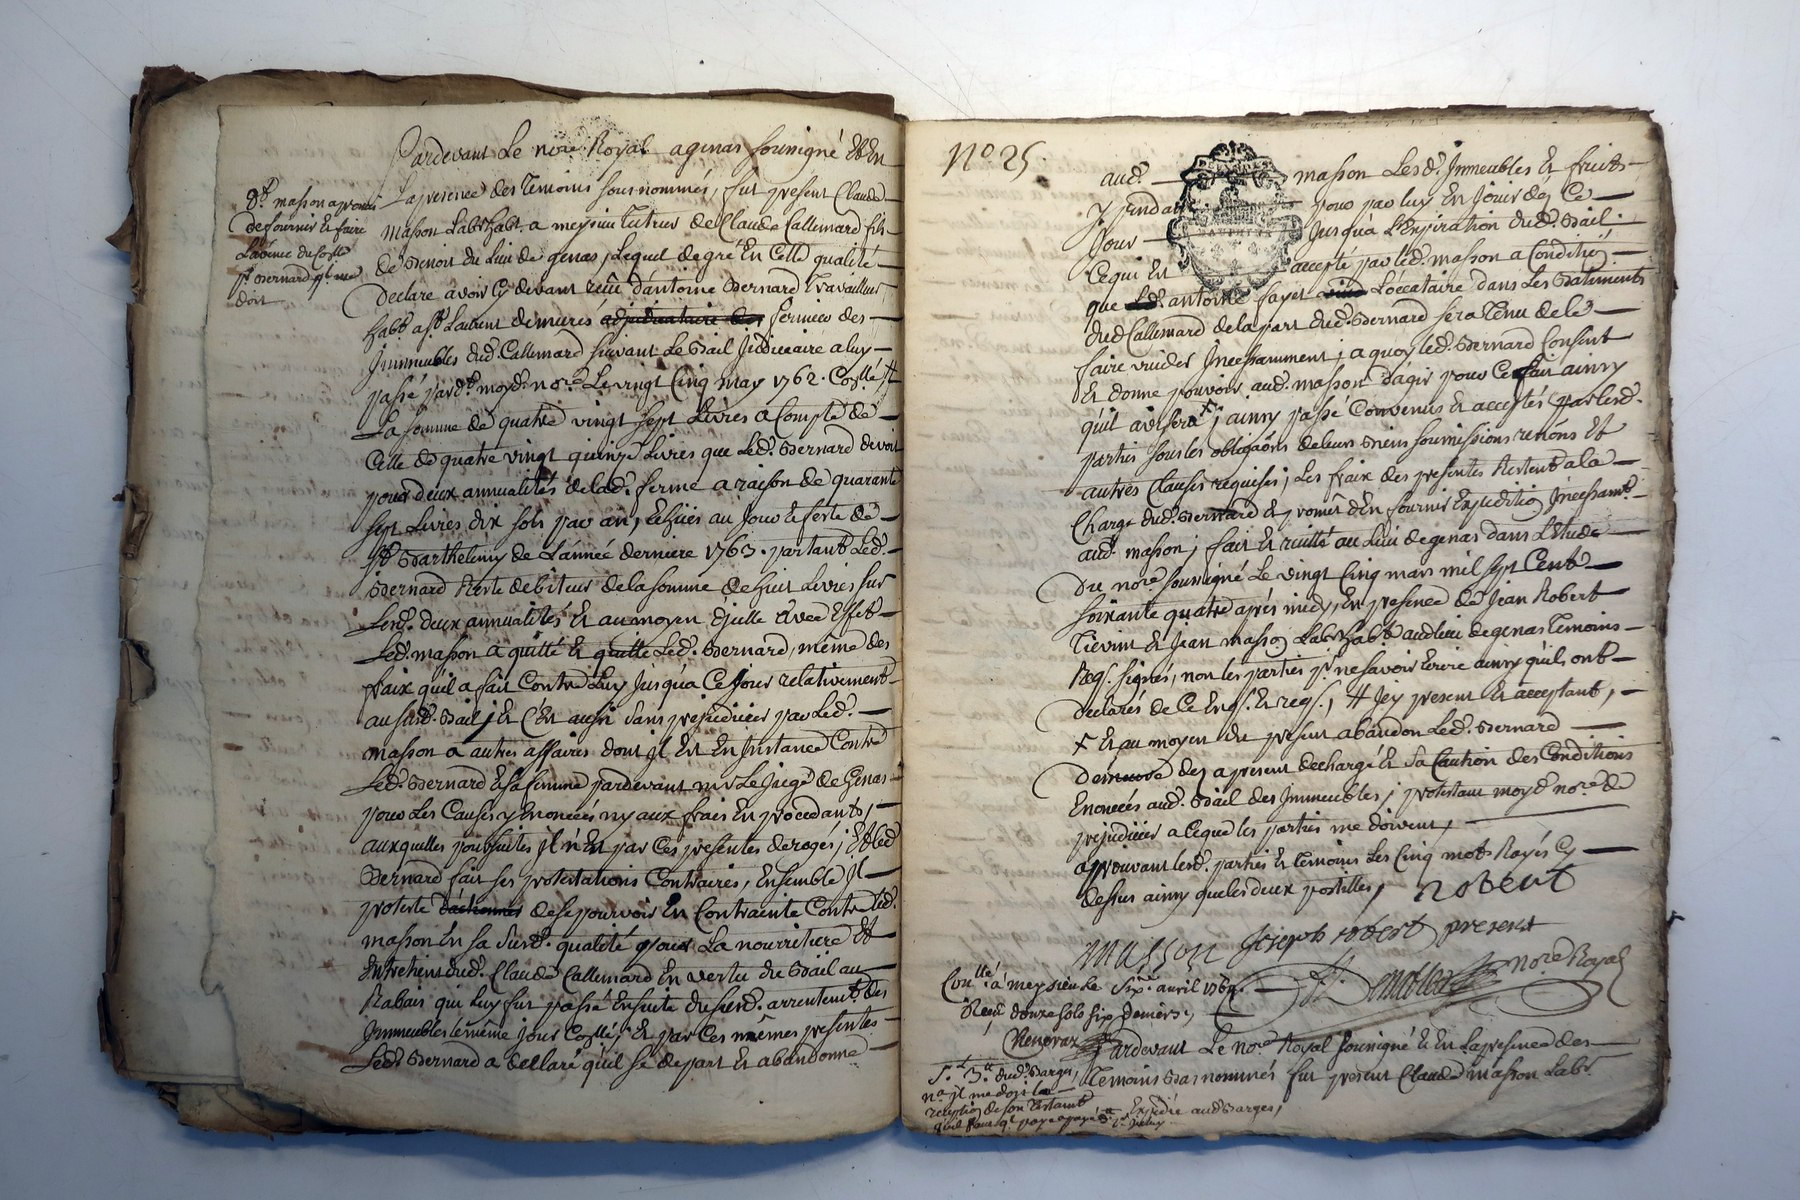 Pardevant Le nore Royal a genas soussigné Et En
La presence des temoins sous nommés, fut present Claude
masson Labr habt. a meysieu tuteur de Claude Callemard fils
de Benoit du Lieu de genas, Lequel de gré En Cette qualité
Declare avoir Cy devant reçu d'antoine Bernard Travailleur
habt. a st Laurent de mures adjudicataire des fermier des
Immeubles dud. Callemard suivant Le Bail Judiciaire a luy
passé pardt. moyd. nore Le vingt Cinq may 1762. Collé #
La somme de quatre vingt sept Livres a Compte de
Celle de quatre vingt quinze Livres que Led. Bernard devoit
pour deux annualités de lad. ferme a raison de quarante
sept Livres dix sols par an, Echües au Jour & feste de
st Barthelemy de L'année derniere 1763. partant Led.
Bernard Reste debiteur de la somme de huit Livres sur
Lesd. deux annualités Et au moyen d'jcelle avec Effet
Led. masson a quitté Et quitte Led. Bernard, même des
fraix qu'il a fait Contre Luy Jusqu'a Ce jour relativement
au susd. Bail; Et C'est aussi sans prejudicier par Led.
masson a autres affaires dont jl Est En Instance Contre
Led. Bernard & sa femme pardevant mr Le Juge de Genas
pour Les Causes y Enoncées ny aux frais En procedants,
auxquelles poursuites jl n'Est par Ces presentes derogé; Et led
Bernard fait ses protestations Contraires, Ensemble jl
proteste de se pourvoir En Contrainte Contre led.
masson En sa susd. qualité pour La nourriture Et
Entretiens dud. Claude Callemard En vertu du Bail au
Rabais qui Luy fut passé Ensuite du susd. arrentemt. des
Immeubles le même jour Collé; Et par Ces mêmes presentes
Led. Bernard a declaré qu'il se depart Et abandonne
dt. masson a promis
de fournir & faire
st Bernard qt. me
doit
No 25
aud. masson Lesd. Immeubles Et fruits
y pendants pour par luy En Jouir dez Ce
Jour Jusqu'a L'Expiration dud. Bail;
Ce qui Est accepté par led. masson a Condition
que Led. antoine fayet Loccataire dans Les Batiments
dud Callemard de la part dud. Bernard sera tenu de le
faire vuider Incessamment; a quoy led. Bernard Consent
Et donne pouvoir aud. masson d'agir pour Ce fait ainsy
qu'il avisera; ainsy passé Convenus Et acceptés par lesd.
parties sous les obligaôns de leurs Biens soumissions renôns Et
autres Clauses requises; Les fraix des presentes Restent a la
Charge dud. Bernard Et promet d'En fournir Expedition Incessamt.
aud. masson; fait Et recitté au Lieu de genas dans L'Etude
du nore. soussigné Le vingt Cinq mars mil sept Cent
soixante quatre après midy, En presence de Jean Robert
& Jean masson Labr habt. aud lieu de genas temoins
Reqs. signés, non les parties pr. ne savoir Ecrire ainsy qu'ils ont
declarés de Ce Enqs. & reqs., # Icy present Et acceptant,
Et au moyen du present abandon Led. Bernard
demeure dez a present dechargé Et sa Caution des Conditions
Enoncées aud. Bail des Immeubles, protestant moyd nore. de
prejudicier a Ce que les parties me doivent,
approuvant lesd. parties Et temoins Les Cinq mots Rayés Cy
dessus ainsy que les deux postilles, robert
masson Joseph robert present
nore Royal
Conllé. a meysieu Le six. avril 1764.
Reçu douze sols six deniers,
Pardevant Le nore. Royal soussigné Et En La presence des
temoins Bas nommés fut present Claude masson Labr.
no. jl me doit la
reception de son testamt
Expedié aud Barges,